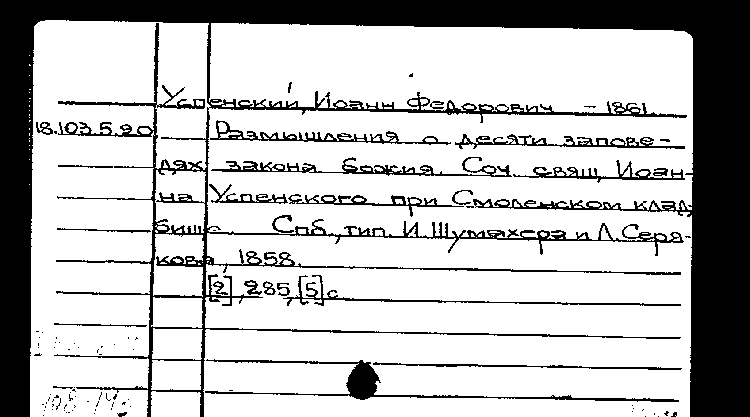 Успенский, Иоанн Федорович - 1861.
18.103.5.20 Размышления о десяти запове-
дях закона Божия. Соч. свящ. Иоан-
на Успенского при Смоленском клад-
бище. Спб., тип. И. Шумахера и Л. Серя-
кова, 1858.
[2], 285, [5] с.